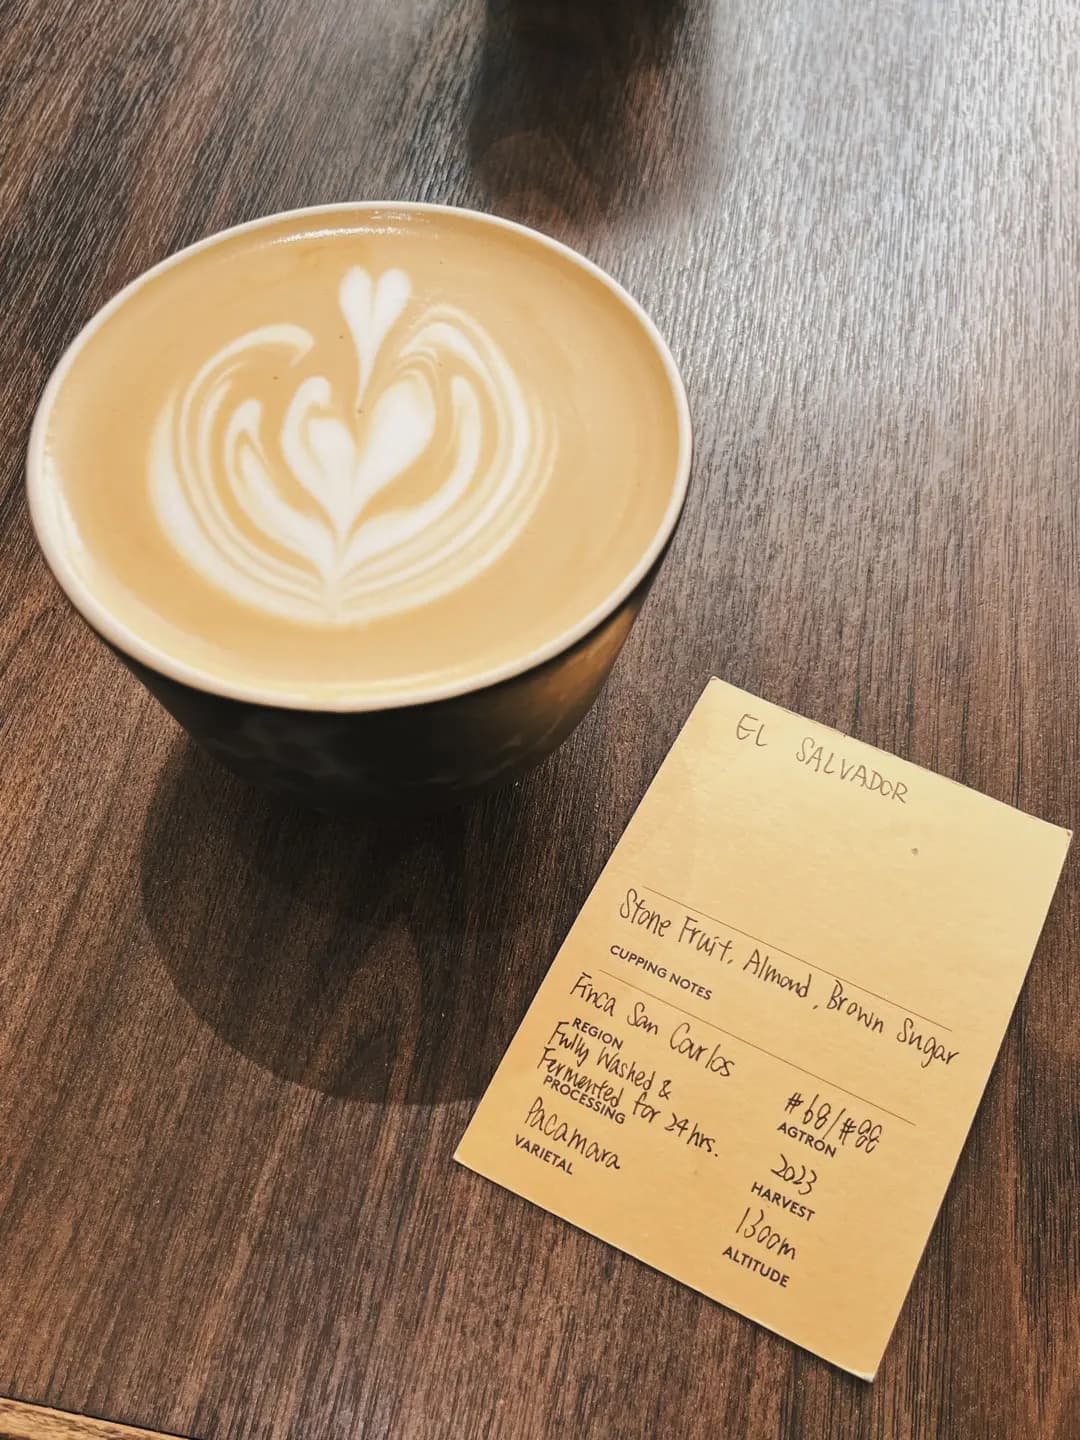 EL SALVADOR
Stone Fruit, Almond, Brown Sugar
CUPPING NOTES
Finca San Carlos
REGION
Fully Washed &
Fermented for 24 hrs.
PROCESSING
Pacamara
VARIETAL
#68/#88
AGTRON
2023
HARVEST
1300m
ALTITUDE